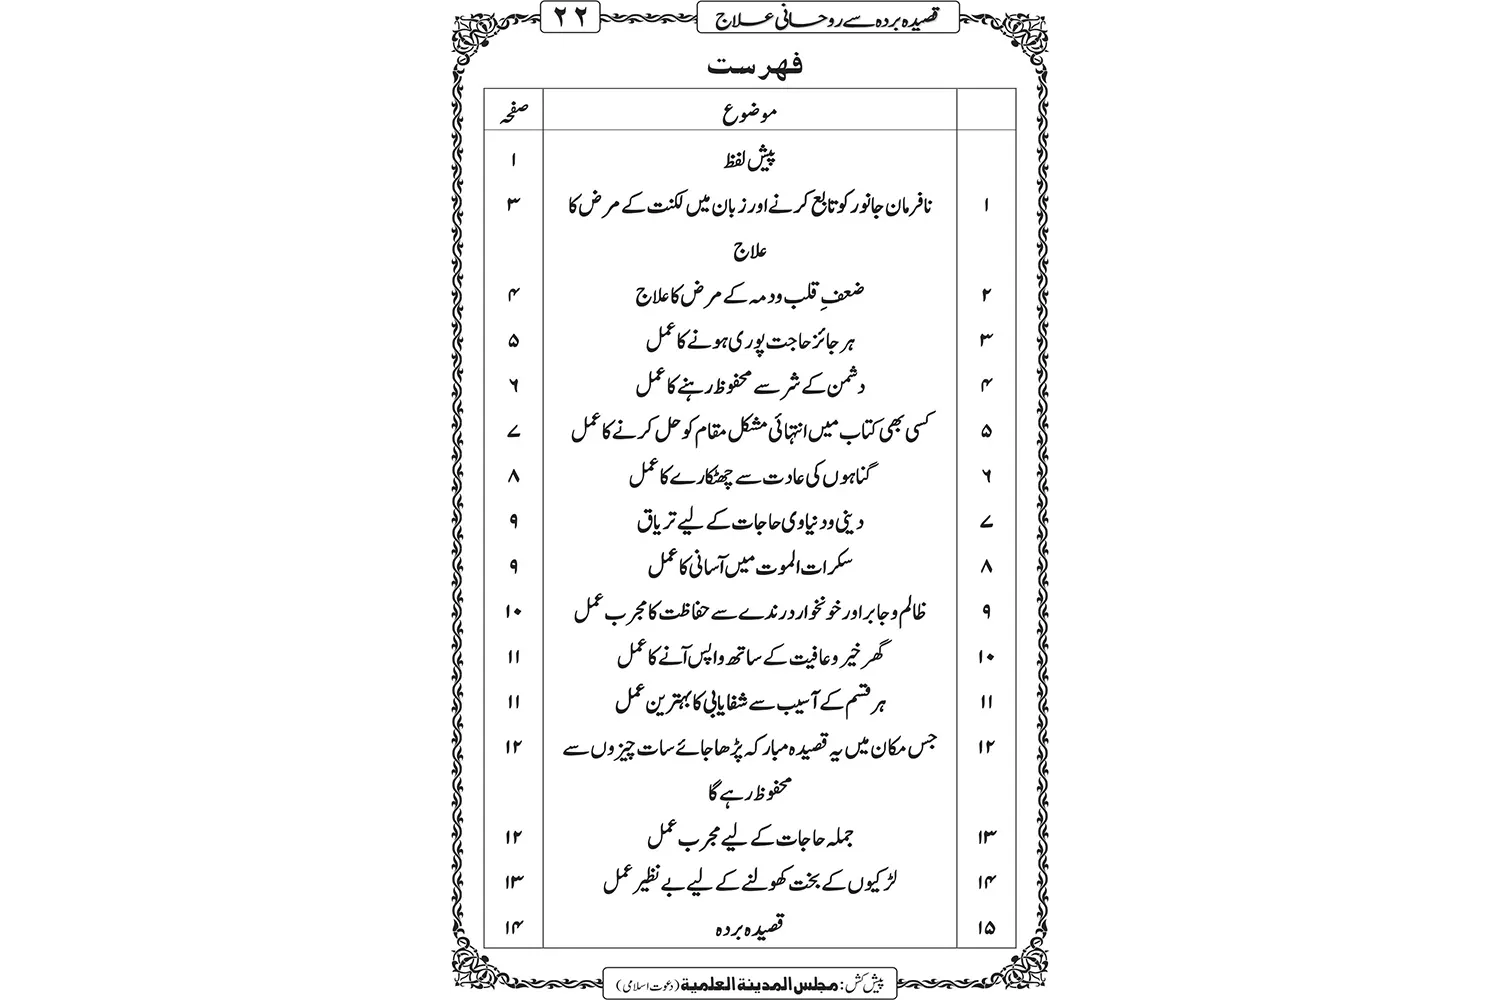 قصیدہ بردہ سے روحانی علاج ۲۲
فہرست
موضوع صفحہ
پیش لفظ ۱
۱ نافرمان جانور کو تابع کرنے اور زبان میں لکنت کے مرض کا ۳
علاج
۲ ضعفِ قلب ودمہ کے مرض کا علاج ۴
۳ ہر جائز حاجت پوری ہونے کا عمل ۵
۴ دشمن کے شر سے محفوظ رہنے کا عمل ۶
۵ کسی بھی کتاب میں انتہائی مشکل مقام کو حل کرنے کا عمل ۷
۶ گناہوں کی عادت سے چھٹکارے کا عمل ۸
۷ دینی ودنیاوی حاجات کے لیے تریاق ۹
۸ سکرات الموت میں آسانی کا عمل ۹
۹ ظالم و جابر اور خونخوار درندے سے حفاظت کا مجرب عمل ۱۰
۱۰ گھر خیر وعافیت کے ساتھ واپس آنے کا عمل ۱۱
۱۱ ہر قسم کے آسیب سے شفایابی کا بہترین عمل ۱۱
۱۲ جس مکان میں یہ قصیدہ مبارکہ پڑھا جائے سات چیزوں سے ۱۲
محفوظ رہے گا
۱۳ جملہ حاجات کے لیے مجرب عمل ۱۲
۱۴ لڑکیوں کے بخت کھولنے کے لیے بے نظیر عمل ۱۳
۱۵ قصیدہ بردہ ۱۴
پیش کش: مجلس المدینۃ العلمیۃ (دعوت اسلامی)